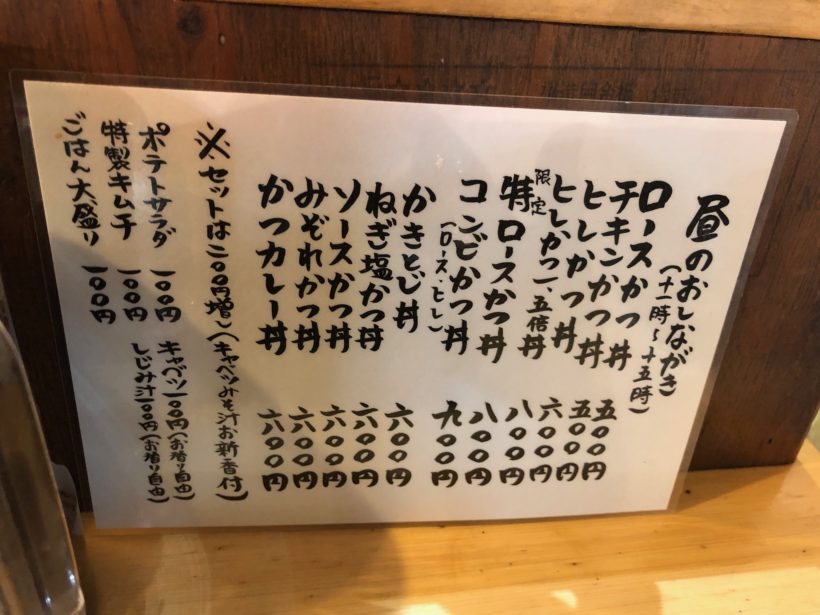 昼のおしながき
(十一時〜十五時)
ロースかつ丼 五〇〇円
チキンかつ丼 五〇〇円
ヒレかつ丼 六〇〇円
ヒレかつ一、五倍丼 八〇〇円
限定
特ロースかつ丼 八〇〇円
コンビかつ丼 九〇〇円
(ロース・ヒレ)
かきとじ丼 六〇〇円
ねぎ塩かつ丼 六〇〇円
ソースかつ丼 六〇〇円
みぞれかつ丼 六〇〇円
かつカレー丼 六〇〇円
※セットは二〇〇円増(キャベツみそ汁お新香付)
ポテトサラダ 一〇〇円
キャベツ一〇〇円(お替り自由)
特製キムチ 一〇〇円
しじみ汁一〇〇円(お替り自由)
ごはん大盛り 一〇〇円